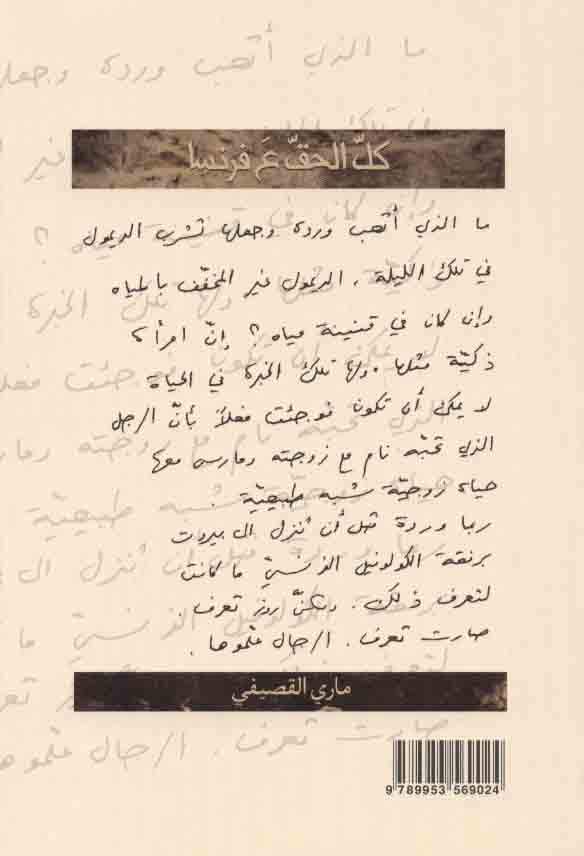 كلّ الحقّ عَ فرنسا
ما الذي أتعب وردة وجعلها تشرب الديمول
في تلك الليلة. الديمول غير المخفّف بالمياه
وإن كان في قنينة مياه؟ إنّ امرأة
ذكيّة مثلها، ولها تلك الخبرة في الحياة
لا يمكن أن تكون فوجئت فعلاً بأنّ الرجل
الذي تحبّه نام مع زوجته ومارس معها
حياة زوجيّة شبه طبيعيّة.
ربما وردة قبل أن تنزل الى بيروت
برفقة الكولونيل الفرنسيّ ما كانت
لتعرف ذلك. ولكنّ روز تعرف.
صارت تعرف. الرجال علّموها.
ماري القصيفي
9 789953 569024